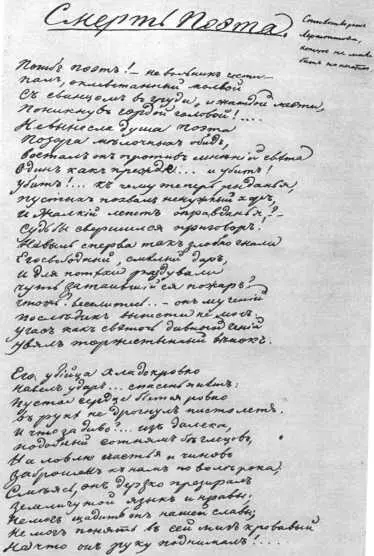 Смерть Поэта.
Стихотворение
Лермонтова,
которое не
Погибъ поэтъ! – невольникъ чести –
палъ, оклеветанный молвой
Съ свинцомъ въ груди, и жаждой мести,
Поникнувъ гордой головой!....
Невынесла душа поэта
Позора мѣлочныхъ обидъ,
возсталъ онъ противъ мнѣній свѣта
Одинъ какъ прежде... и убитъ!
убитъ!... къ чему теперь рыданья,
пустыхъ похвалъ ненужный хоръ,
И жалкій лепетъ оправданья?–
Судьбы свершился приговоръ!
Невыль сперва такъ злобно гнали
Его свободный, смѣлый даръ,
и для потѣхи раздували
чуть затаившійся пожаръ?
чтожъ? веселитесь.. – онъ мученій
послѣднихъ вынести не могъ.
угасъ какъ свѣточь дивный геній
увялъ торжественный вѣнокъ.
Его убійца хладокровно
навелъ ударъ... спасенья нѣтъ:
пустое сердце бьется ровно
въ рукѣ не дрогнулъ пистолетъ.
И что за диво?... изъ далека,
подобный сотнямъ бѣглецовъ,
На ловлю счастья и чиновъ
Заброшенъ къ намъ по волѣ рока,
Смѣясь, онъ дерзко презиралъ
Земли чужой языкъ и нравы;
Не могъ щадить онъ нашей славы;
Не могъ понять въ сей мигъ кровавый
На что онъ руку поднималъ!...